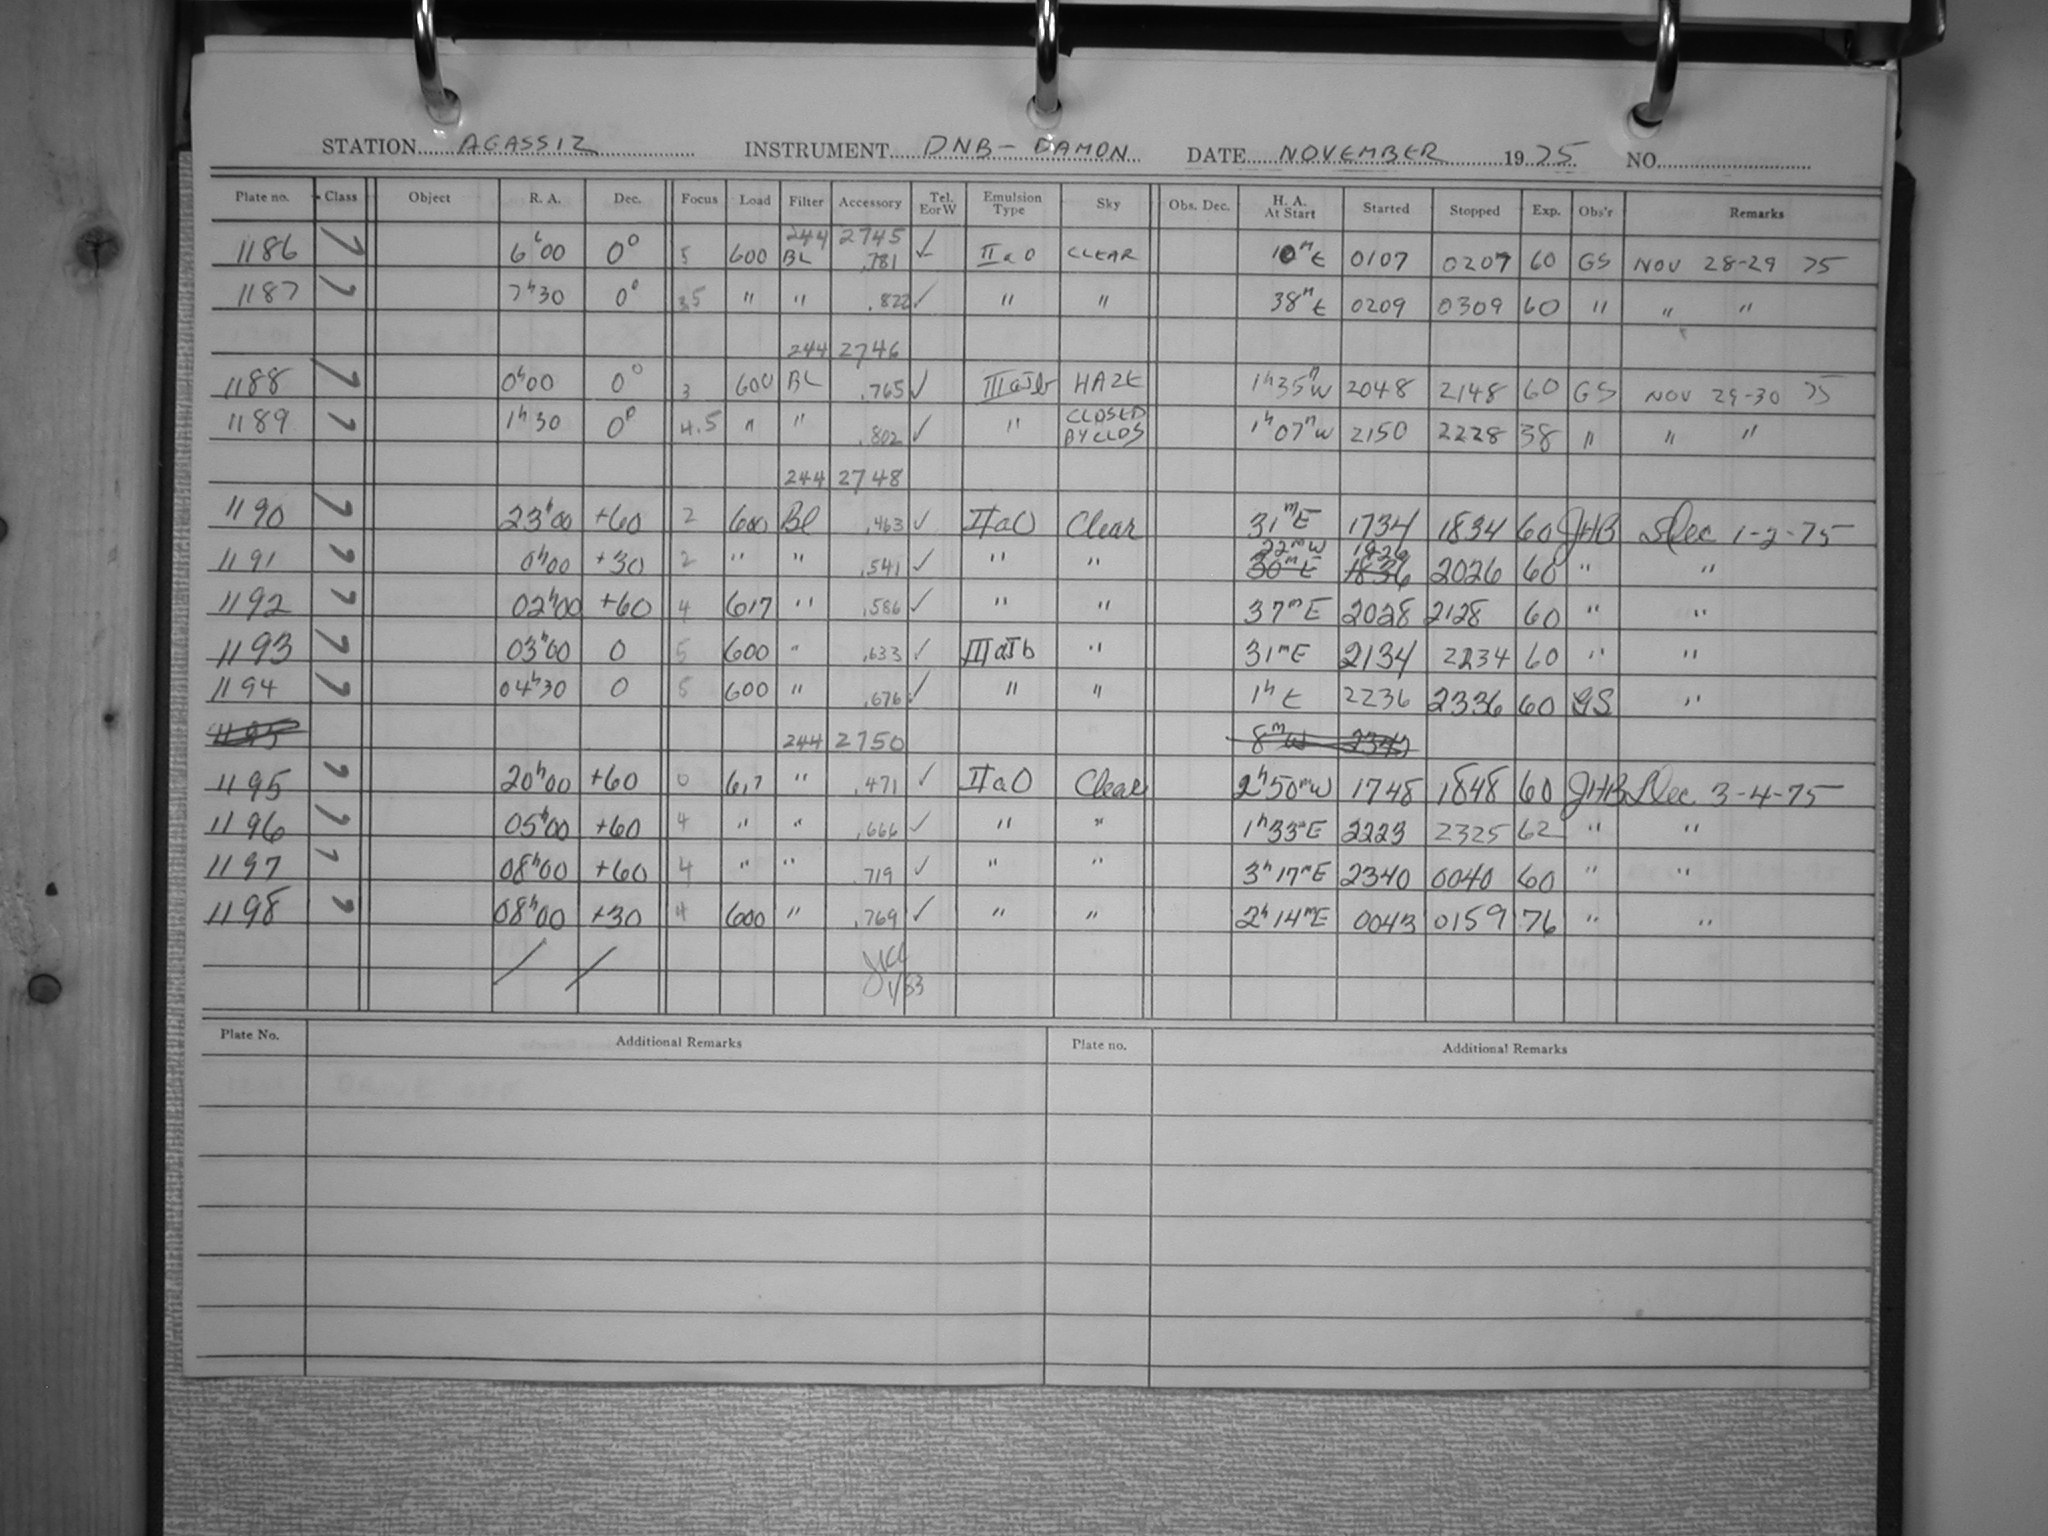 STATION AGASSIZ INSTRUMENT DNB - DAMON DATE NOVEMBER 1975 NO.
Plate no. Class Object R. A. Dec. Focus Load Filter Accessory Tel. E or W Emulsion Type Sky Obs. Dec. H. A. At Start Started Stopped Exp. Obs'r Remarks
244 2745
1186 6h00 0° 5 600 BL .781 ✓ IIaO CLEAR 10m E 0107 0207 60 GS NOV 28-29 75
1187 7h30 0° 3.5 " " .822 ✓ " " 38m E 0209 0309 60 " " "
244 2746
1188 0h00 0° 3 600 BL .765 ✓ IIIaJb HAZE 1h35m W 2048 2148 60 GS NOV 29-30 75
1189 1h30 0° 4.5 " " .802 ✓ " CLOSED BY CLDS 1h07m W 2150 2228 38 " " "
244 2748
1190 23h00 +60 2 600 Bl .463 ✓ IIaO Clear 31m E 1734 1834 60 JHB Dec 1-2-75
22m W 1926
1191 0h00 +30 2 " " .541 ✓ " " 30m E 1836 2026 60 " "
1192 02h00 +60 4 617 " .586 ✓ " " 37m E 2028 2128 60 " "
1193 03h00 0 5 600 " .633 ✓ IIIaJb " 31m E 2134 2234 60 " "
1194 04h30 0 5 600 " .676 ✓ " " 1h E 2236 2336 60 GS "
1195 244 2750 8m W 2342
1195 20h00 +60 0 617 " .471 ✓ IIaO Clear 2h50m W 1748 1848 60 JHB Dec 3-4-75
1196 05h00 +60 4 " " .666 ✓ " " 1h33m E 2223 2325 62 " "
1197 08h00 +60 4 " " .719 ✓ " " 3h17m E 2340 0040 60 " "
1198 08h00 +30 4 600 " .769 ✓ " " 2h14m E 0043 0159 76 " "
1/83
Plate No. Additional Remarks Plate no. Additional Remarks